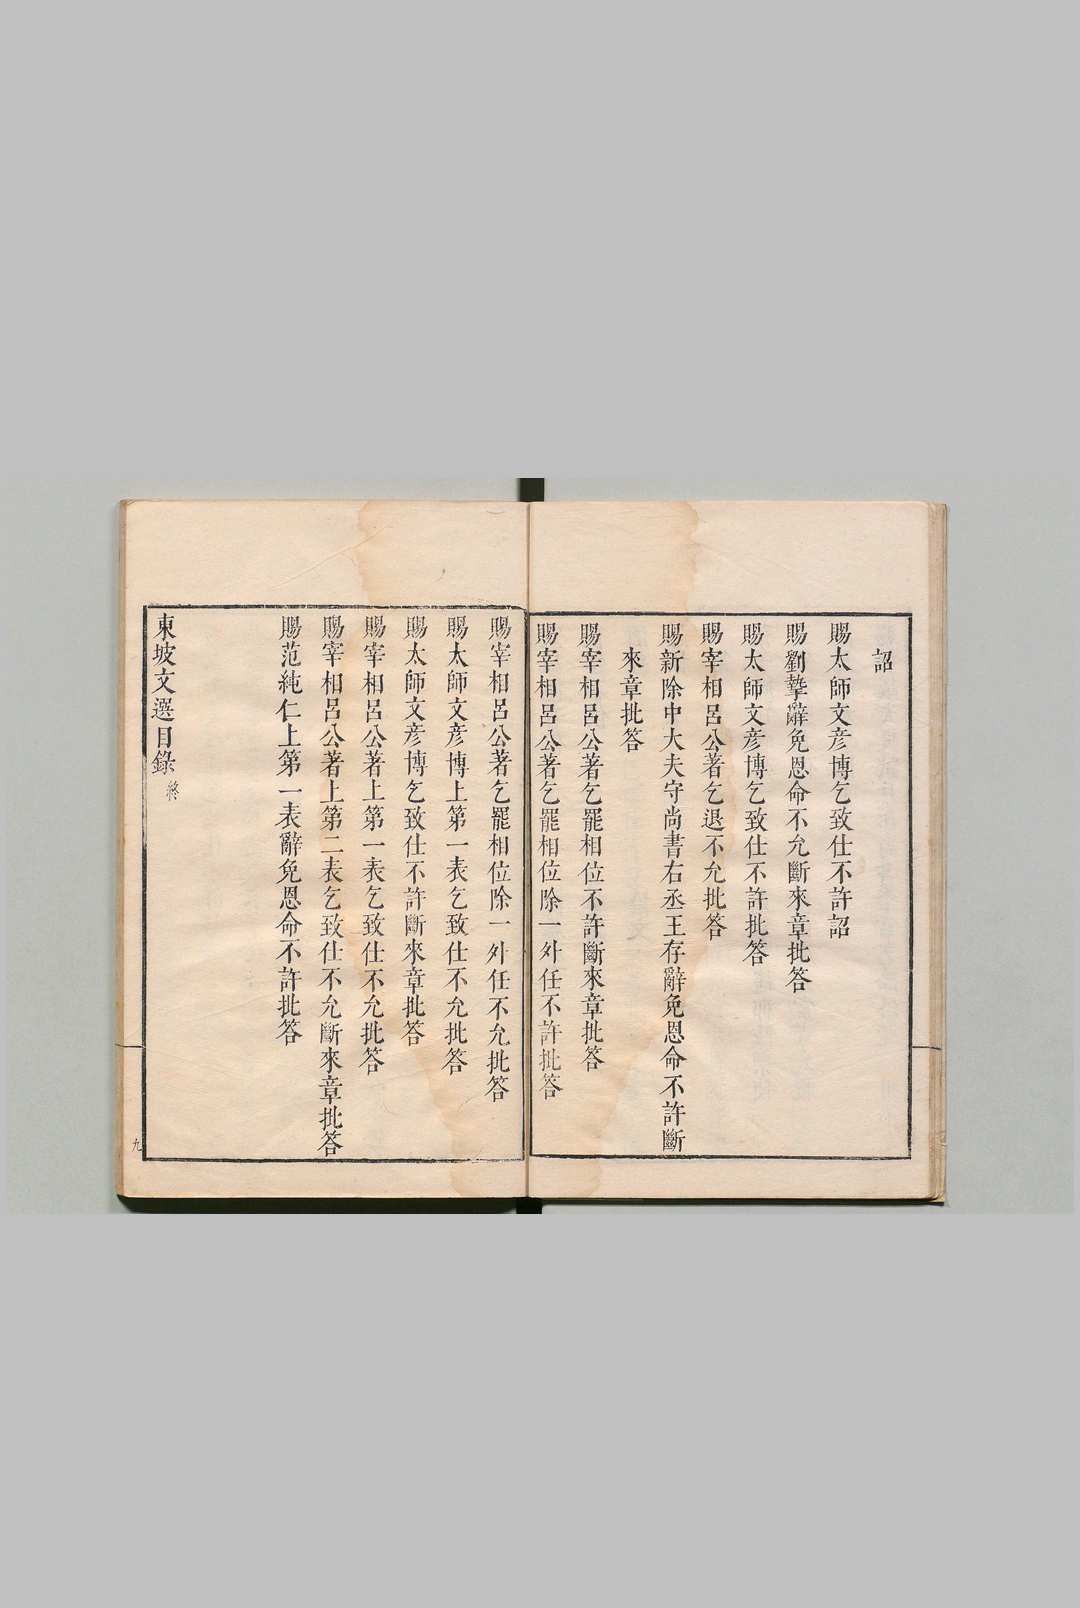 詔
賜太師文彦博乞致仕不許詔
賜劉摯辭免恩命不允斷來章批答
賜太師文彦博乞致仕不許批答
賜宰相呂公著乞退不允批答
賜新除中大夫守尚書右丞王存辭免恩命不許斷
來章批答
賜宰相呂公著乞罷相位不許斷來章批答
賜宰相呂公著乞罷相位除一外任不許批答
賜宰相呂公著乞罷相位除一外任不允批答
賜太師文彦博上第一表乞致仕不允批答
賜太師文彦博乞致仕不許斷來章批答
賜宰相呂公著上第一表乞致仕不允批答
賜宰相呂公著上第二表乞致仕不允斷來章批答
賜范純仁上第一表辭免恩命不許批答
東坡文選目錄終
九